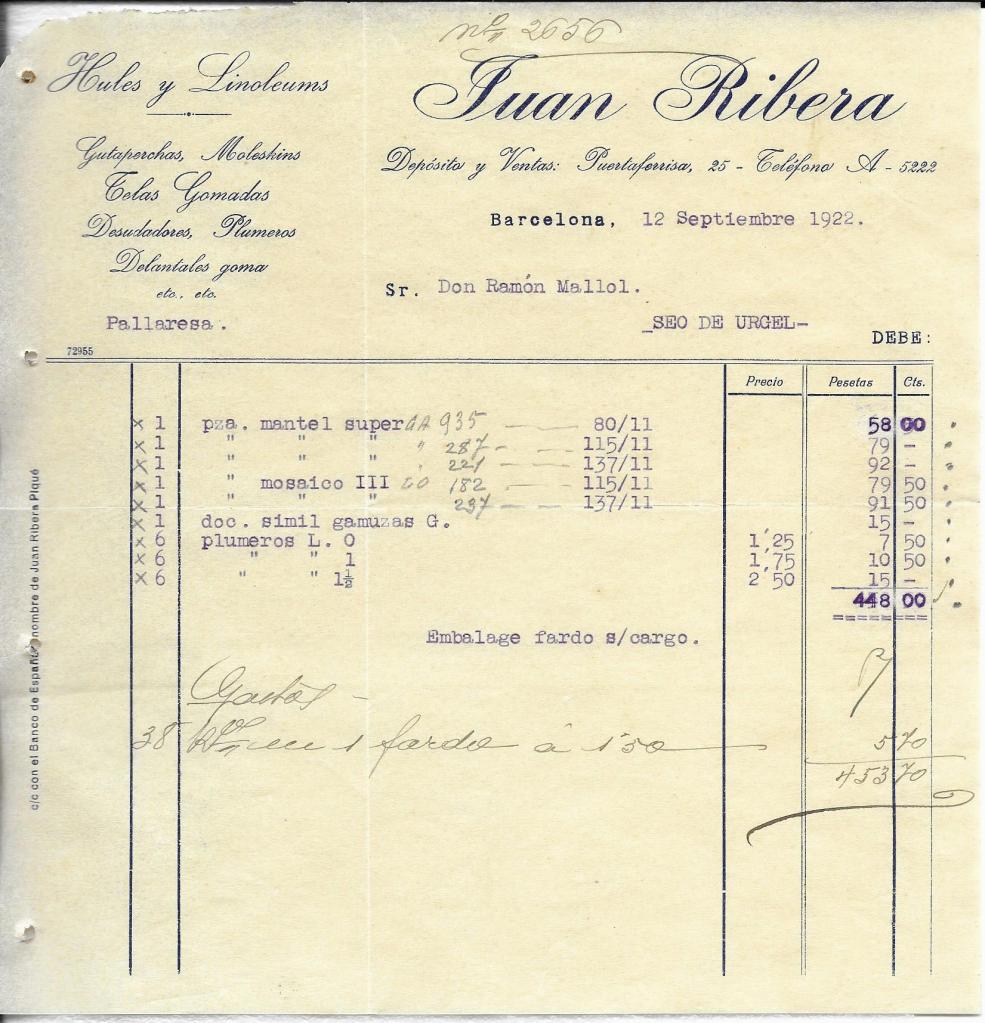 nº 2656
Hules y Linoleums
Gutaperchas, Moleskins
Telas Gomadas
Desudadores, Plumeros
Delantales goma
etc., etc.
Pallaresa.
72955
Juan Ribera
Depósito y Ventas: Puertaferrisa, 25 - Teléfono A - 5222
Barcelona, 12 Septiembre 1922.
Sr. Don Ramón Mallol.
_SEO DE URGEL-
DEBE:
Precio Pesetas Cts.
x 1 pza. mantel super GA 935 80/11 58 00
x 1 " " " " 287 - 115/11 79 -
x 1 " " " " 221 137/11 92 -
x 1 " mosaico III 182 115/11 79 50
x 1 " " " 237 137/11 91 50
x 1 doc. simil gamuzas G. 15 -
x 6 plumeros L. O 1'25 7 50
x 6 " " 1 1,75 10 50
x 6 " " 1½ 2 50 15 -
448 00
======
Embalage fardo s/cargo.
Gastos -
38 en 1 fardo á 1'50 5 70
453 70
c/c con el Banco de España nombre de Juan Ribera Piqué